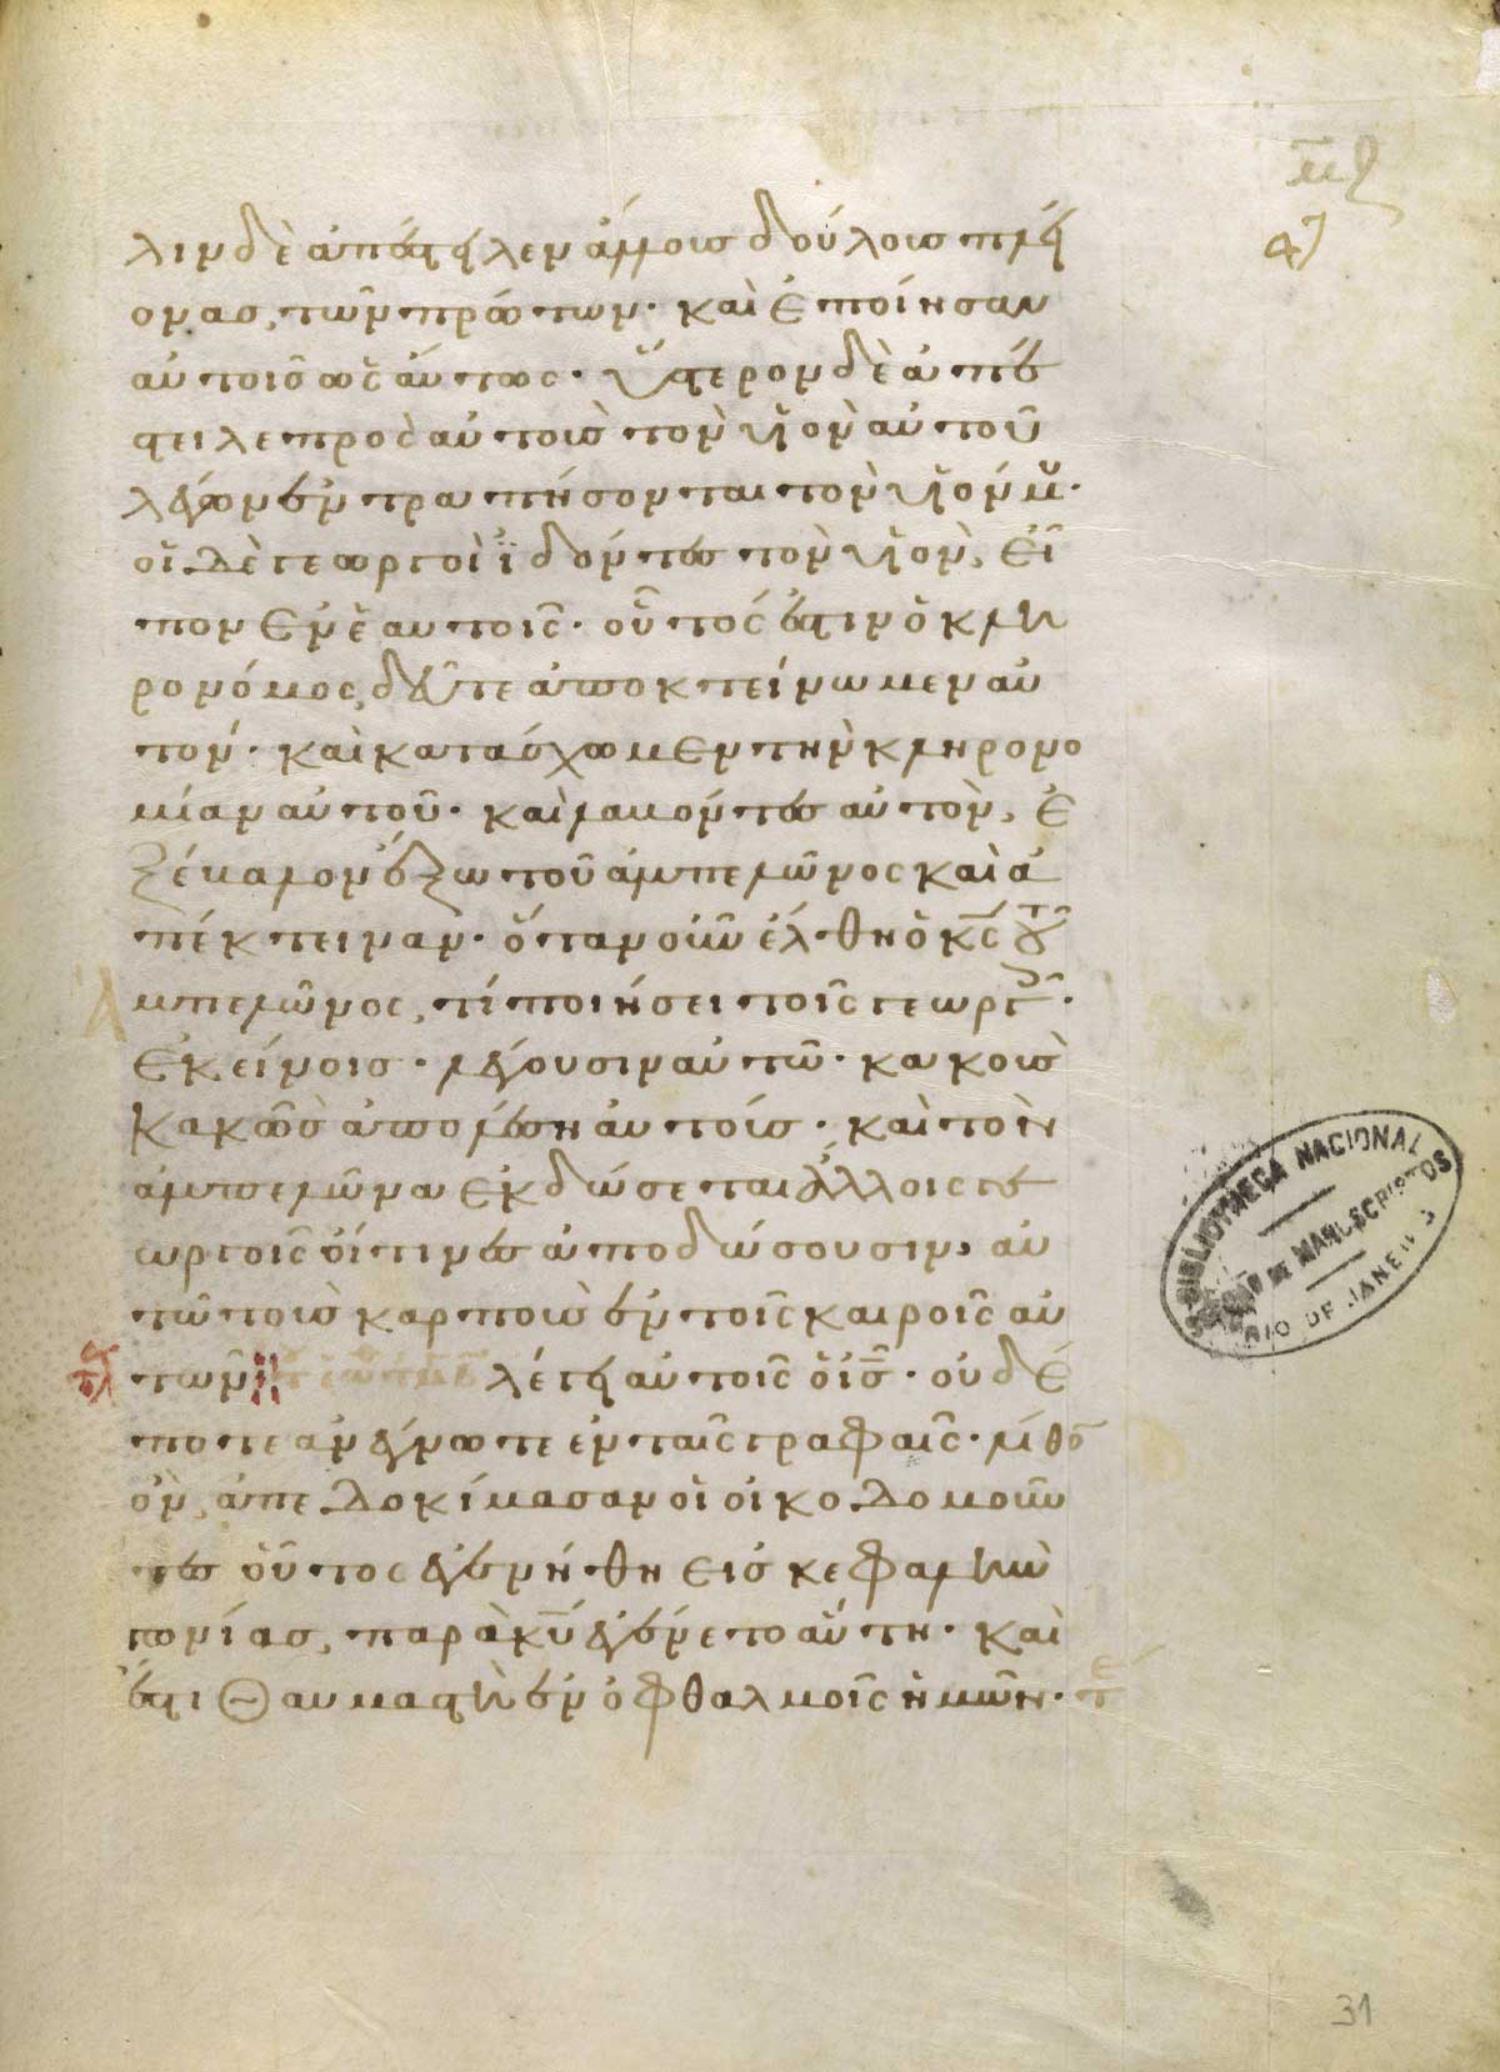 μζ
47
λιν δὲ ἀπέστειλεν ἄλλους δούλους πλεί
ονας τῶν πρώτων· καὶ ἐποίησαν
αὐτοῖς ὡσαύτως· ὕστερον δὲ ἀπέ
στειλε πρὸς αὐτοὺς τὸν υἱὸν αὐτοῦ
λέγων ἐντραπήσονται τὸν υἱόν μου·
οἱ δὲ γεωργοὶ ἰδόντες τὸν υἱὸν, εἶ
πον ἐν ἑαυτοῖς· οὗτός ἐστιν ὁ κλη
ρονόμος, δεῦτε ἀποκτείνωμεν αὐ
τόν· καὶ κατάσχωμεν τὴν κληρονο
μίαν αὐτοῦ· καὶ λαβόντες αὐτὸν, ἐ
ξέβαλον ἔξω τοῦ ἀμπελῶνος καὶ ἀ
πέκτειναν· ὅταν οὖν ἔλθη ὁ κς τοῦ ἀ
μπελῶνος, τί ποιήσει τοῖς γεωργοῖς·
ἐκείνοις· λέγουσιν αὐτῶ· κακοὺς
κακῶς ἀπολέση αὐτούς· καὶ τὸν
ἀμπελῶνα ἐκδώσεται ἄλλοις γε
ωργοῖς οἵτινες ἀποδώσουσιν, αὐ
τῶ τοὺς καρποὺς ἐν τοῖς καιροῖς αὐ
τῶν λέγει αὐτοῖς ὁ ις· οὐδέ
ποτε ἀνέγνωτε ἐν ταῖς γραφαῖς· λίθον
ὃν, ἀπεδοκίμασαν οἱ οἰκοδομοῦν
τες οὗτος ἐγενήθη εἰς κεφαλὴν
γωνίας, παρὰ κυ ἐγένετο αὕτη· καὶ
ἔστι θαυμαστὴ ἐν ὀφθαλμοῖς ἡμῶν·
BIBLIOTHECA NACIONAL
SECÇÃO DE MANUSCRIPTOS
RIO DE JANEIRO
31